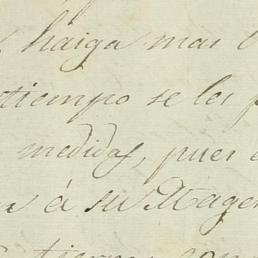 haiga mas
tiempo se les
medidas, pues
á su Mages